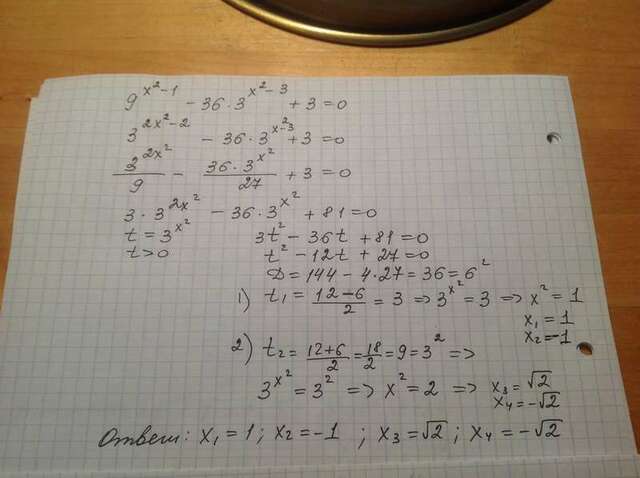 9^{x^2-1} - 36·3^{x^2-3} + 3 = 0
3^{2x^2-2} - 36·3^{x^2-3} + 3 = 0
\frac{3^{2x^2}}{9} - \frac{36·3^{x^2}}{27} + 3 = 0
3·3^{2x^2} - 36·3^{x^2} + 81 = 0
t = 3^{x^2} 3t^2 - 36t + 81 = 0
t > 0 t^2 - 12t + 27 = 0
D = 144 - 4·27 = 36 = 6^2
1) t_1 = \frac{12-6}{2} = 3 => 3^{x^2} = 3 => x^2 = 1
x_1 = 1
x_2 = -1
2) t_2 = \frac{12+6}{2} = \frac{18}{2} = 9 = 3^2 =>
3^{x^2} = 3^2 => x^2 = 2 => x_3 = √2
x_4 = -√2
Ответ: x_1 = 1; x_2 = -1 ; x_3 = √2 ; x_4 = -√2